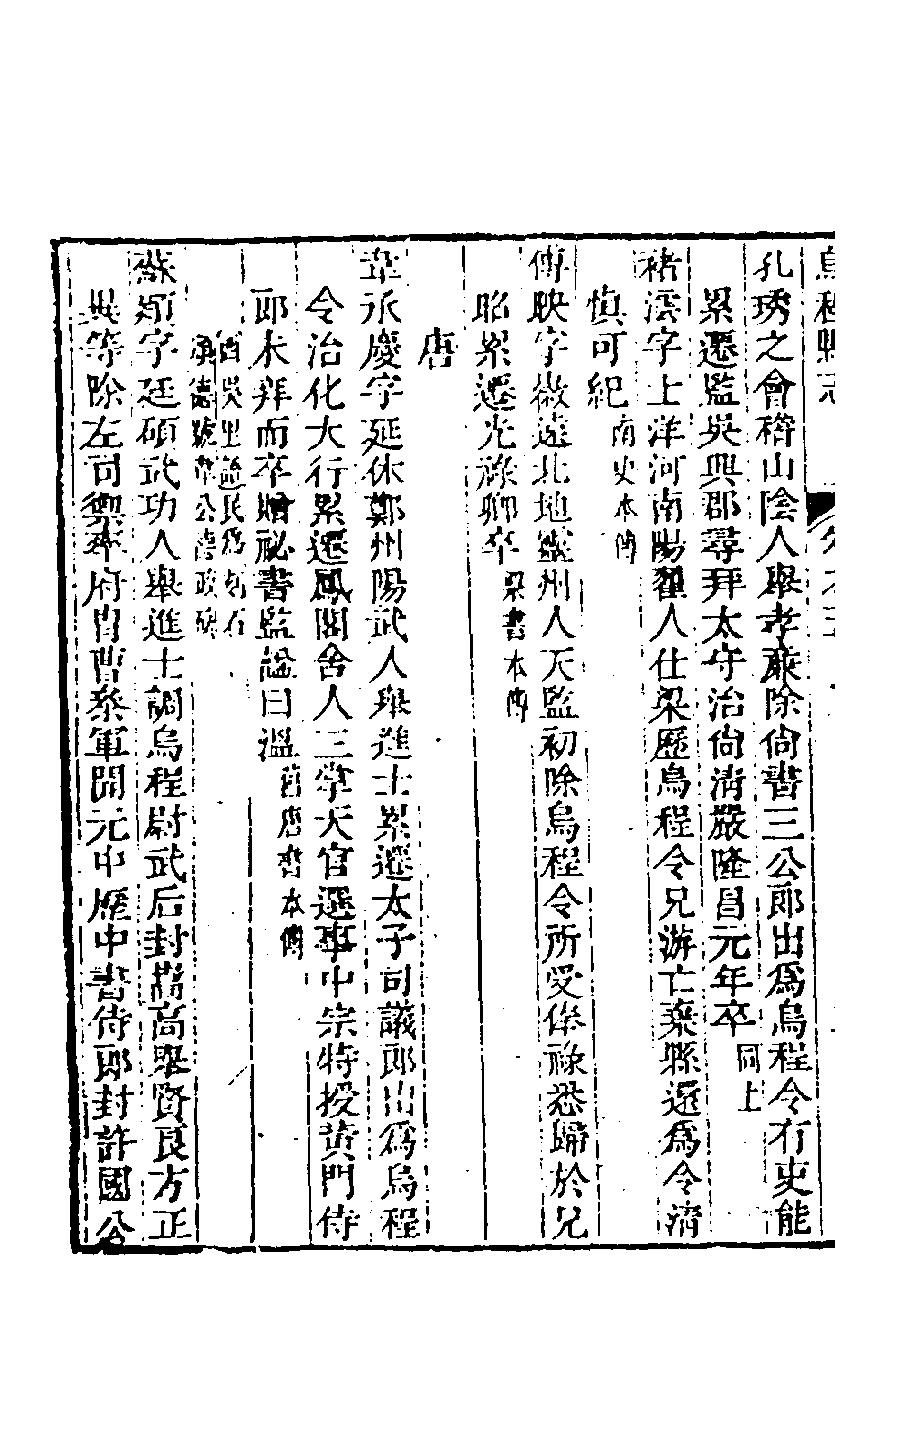 烏程縣志
孔琇之會稽山陰人舉孝廉除尙書三公郎出爲烏程令有吏能
累遷監吳興郡尋拜太守治尙淸嚴隆昌元年卒同上
褚澐字士洋河南陽翟人仕梁歷烏程令兄游亡棄縣還爲令淸
愼可紀南史本傳
傅映字徽遠北地靈州人天監初除烏程令所受俸祿悉歸於兄
昭累遷光祿卿卒梁書本傳
唐
韋承慶字延休鄭州陽武人舉進士累遷太子司議郎出爲烏程
令治化大行累遷鳳閣舍人三掌天官選事中宗特授黃門侍
郎未拜而卒贈祕書監諡曰溫舊唐書本傳
吳里遺民爲刻石
頌德號韋公善政碑
蘇頲字廷碩武功人舉進士調烏程尉武后封嵩高舉賢良方正
異等除左司禦率府胄曹參軍開元中歷中書侍郎封許國公